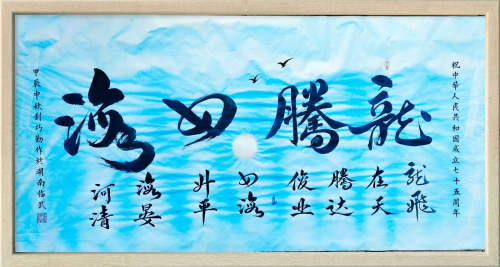 祝中華人民共和國成立七十五周年
龍騰四海
龍飛
在天
騰達
俊业
四海
升平
海晏
河清
甲辰中秋劉巧勤作於湖南临武